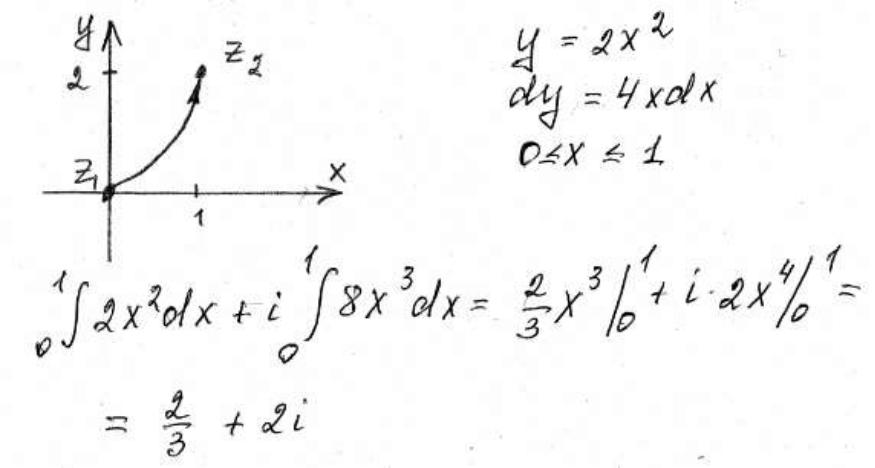 y
2
z₂
z₁
1
x
y = 2x²
dy = 4xdx
0 ≤ x ≤ 1
₀¹∫ 2x²dx + i ₀¹∫ 8x³dx = 2/3 x³ |₀¹ + i · 2x⁴ |₀¹ =
= 2/3 + 2i